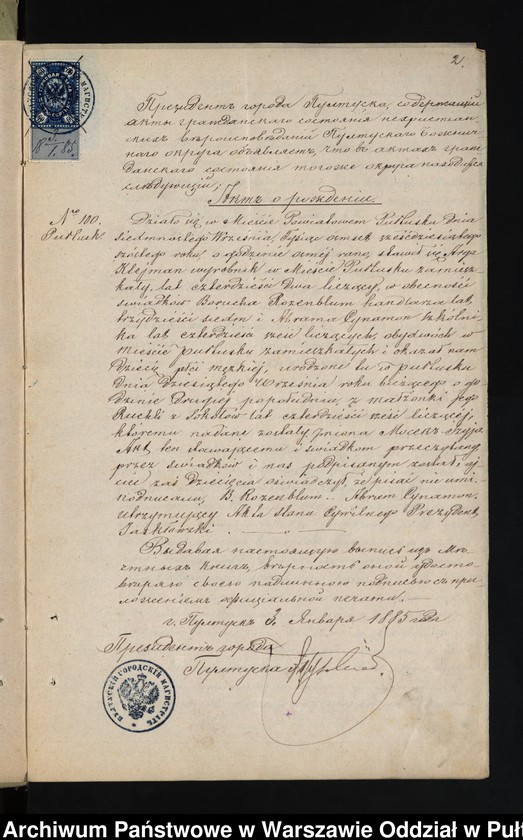 2.
Президентъ города Пултуска, содержащій
акты гражданскаго состоянія нехристіан-
скихъ вѣроисповѣданій Пултускаго Божнич-
наго округа объявляетъ, что въ актахъ граж-
данскаго состоянія тогоже округа находится
слѣдующій:
Актъ о рожденіи.
No 100.
Pułtusk.
Działo się w Mieście Powiatowem Pułtusku Dnia
siedmnastego Września, tysiąc ośmset sześćdziesiątego
szóstego roku, o godzinie ósmej rano, stawił się
Klejman wyrobnik w Mieście Pułtusku zamiesz-
kały, lat czterdzieści dwa liczący, w obecności
świadków Borucha Rozenblum handlarza lat
trzydzieści siedm i Abrama Cynamon szkolni-
ka lat czterdzieści sześć liczących, obydwóch w
mieście Pułtusku zamieszkałych i okazał nam
Dziecię płci męzkiej, urodzone tu w Pułtusku
Dnia Dziesiątego Września roku bieżącego o go-
dzinie Drugiej popołudniu, z małżonki jego
Ruchli z Sokołów lat czterdzieści sześć liczącej,
któremu nadane zostały imiona Moszek
Akt ten stawającemu i świadkom przeczytany
przez świadków i nas podpisanym został, oj-
ciec zaś Dziecięcia oświadczył, że pisać nie umie
podpisano, B. Rozenblum. Abram Cynamon.
utrzymujący Akta Stanu Cywilnego Prezydent,
Выдавая настоящую выпись изъ
книгъ, вѣрность оной удосто-
вѣряю своею подписью съ при-
ложеніемъ оффиціальной печати.
г. Пултускъ 3 Января 1885 года
Президентъ города
Пултуска
ПУЛТУСКІЙ ГОРОДСКІЙ МАГИСТРАТЪ
Archiwum Państwowe w Warszawie Oddział w Puł